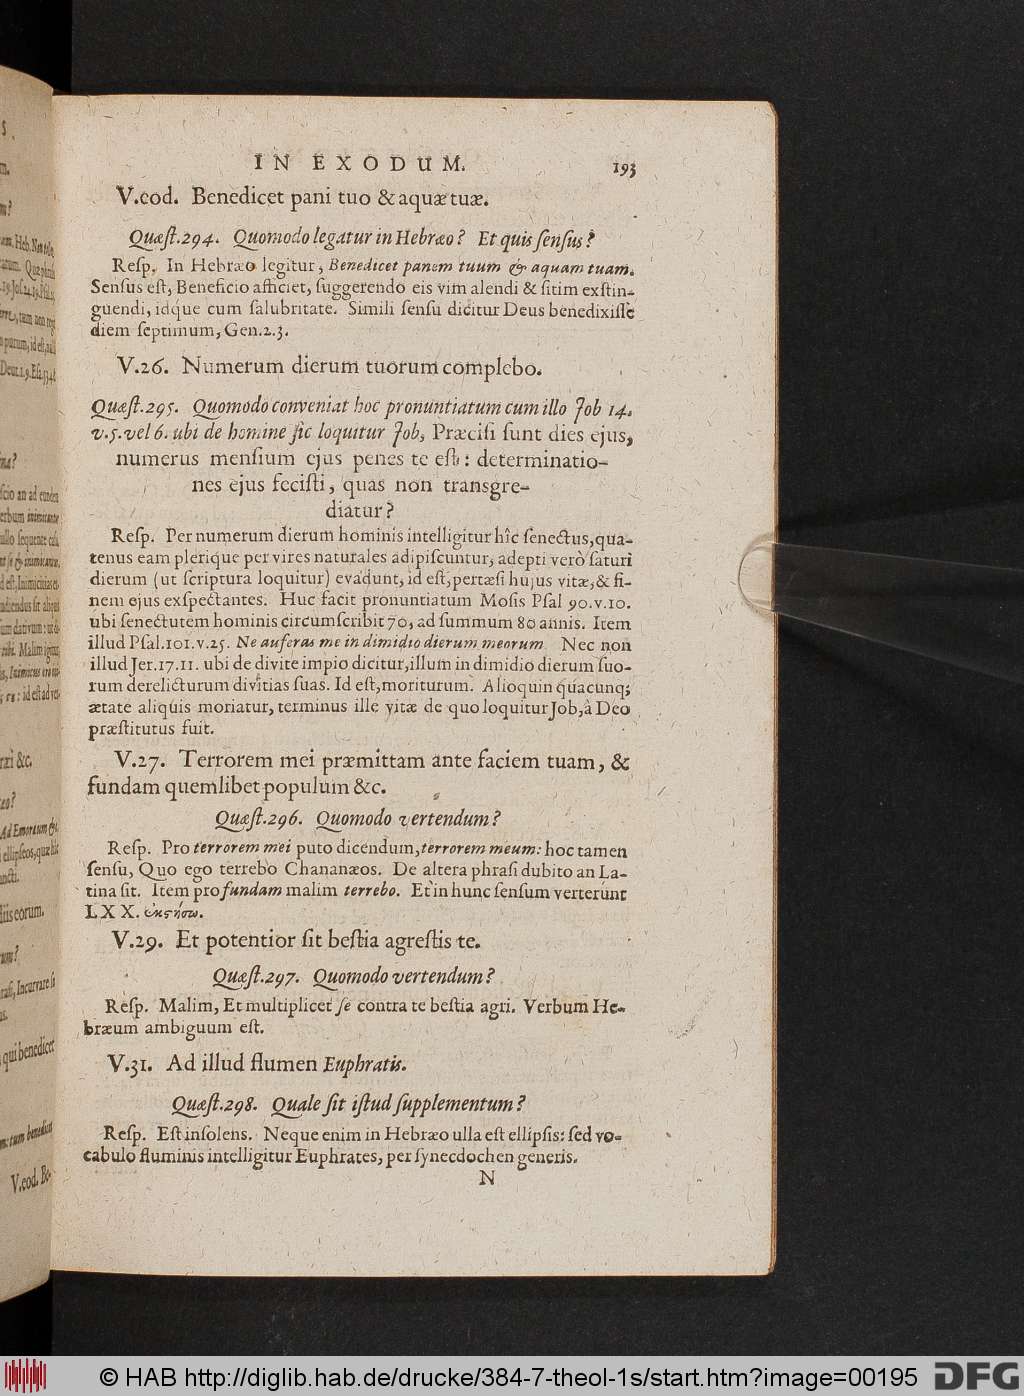 IN EXODUM. 193
V.eod. Benedicet pani tuo & aquæ tuæ.
Quæſt.294. Quomodo legatur in Hebræo? Et quis ſenſus?
Reſp. In Hebræo legitur, Benedicet panem tuum & aquam tuam.
Senſus eſt, Beneficio afficiet, ſuggerendo eis vim alendi & ſitim exſtin-
guendi, idque cum ſalubritate. Simili ſenſu dicitur Deus benedixiſſe
diem ſeptimum, Gen.2.3.
V.26. Numerum dierum tuorum complebo.
Quæſt.295. Quomodo conveniat hoc pronuntiatum cum illo Job 14.
v.5.vel 6. ubi de homine ſic loquitur Job, Præciſi ſunt dies ejus,
numerus menſium ejus penes te eſt: determinatio-
nes ejus feciſti, quas non transgre-
diatur?
Reſp. Per numerum dierum hominis intelligitur hîc ſenectus, qua-
tenus eam plerique per vires naturales adipiſcuntur, adepti verò ſaturi
dierum (ut ſcriptura loquitur) evadunt, id eſt, pertæſi hujus vitæ, & fi-
nem ejus exſpectantes. Huc facit pronuntiatum Moſis Pſal 90.v.10.
ubi ſenectutem hominis circumſcribit 70, ad ſummum 80 annis. Item
illud Pſal.101.v.25. Ne auferas me in dimidio dierum meorum Nec non
illud Jer.17.11. ubi de divite impio dicitur, illum in dimidio dierum ſuo-
rum derelicturum divitias ſuas. Id eſt, moriturum. Alioquin quacunq;
ætate aliquis moriatur, terminus ille vitæ de quo loquitur Job, à Deo
præſtitutus fuit.
V.27. Terrorem mei præmittam ante faciem tuam, &
fundam quemlibet populum &c.
Quæſt.296. Quomodo vertendum?
Reſp. Pro terrorem mei puto dicendum, terrorem meum: hoc tamen
ſenſu, Quo ego terrebo Chananæos. De altera phraſi dubito an La-
tina ſit. Item pro fundam malim terrebo. Et in hunc ſenſum verterunt
LXX. ἐκστήσω.
V.29. Et potentior ſit beſtia agreſtis te.
Quæſt.297. Quomodo vertendum?
Reſp. Malim, Et multiplicet ſe contra te beſtia agri. Verbum He-
bræum ambiguum eſt.
V.31. Ad illud flumen Euphratis.
Quæſt.298. Quale ſit iſtud ſupplementum?
Reſp. Eſt inſolens. Neque enim in Hebræo ulla eſt ellipſis: ſed vo-
cabulo fluminis intelligitur Euphrates, per ſynecdochen generis.
N
© HAB http://diglib.hab.de/drucke/384-7-theol-1s/start.htm?image=00195 DFG